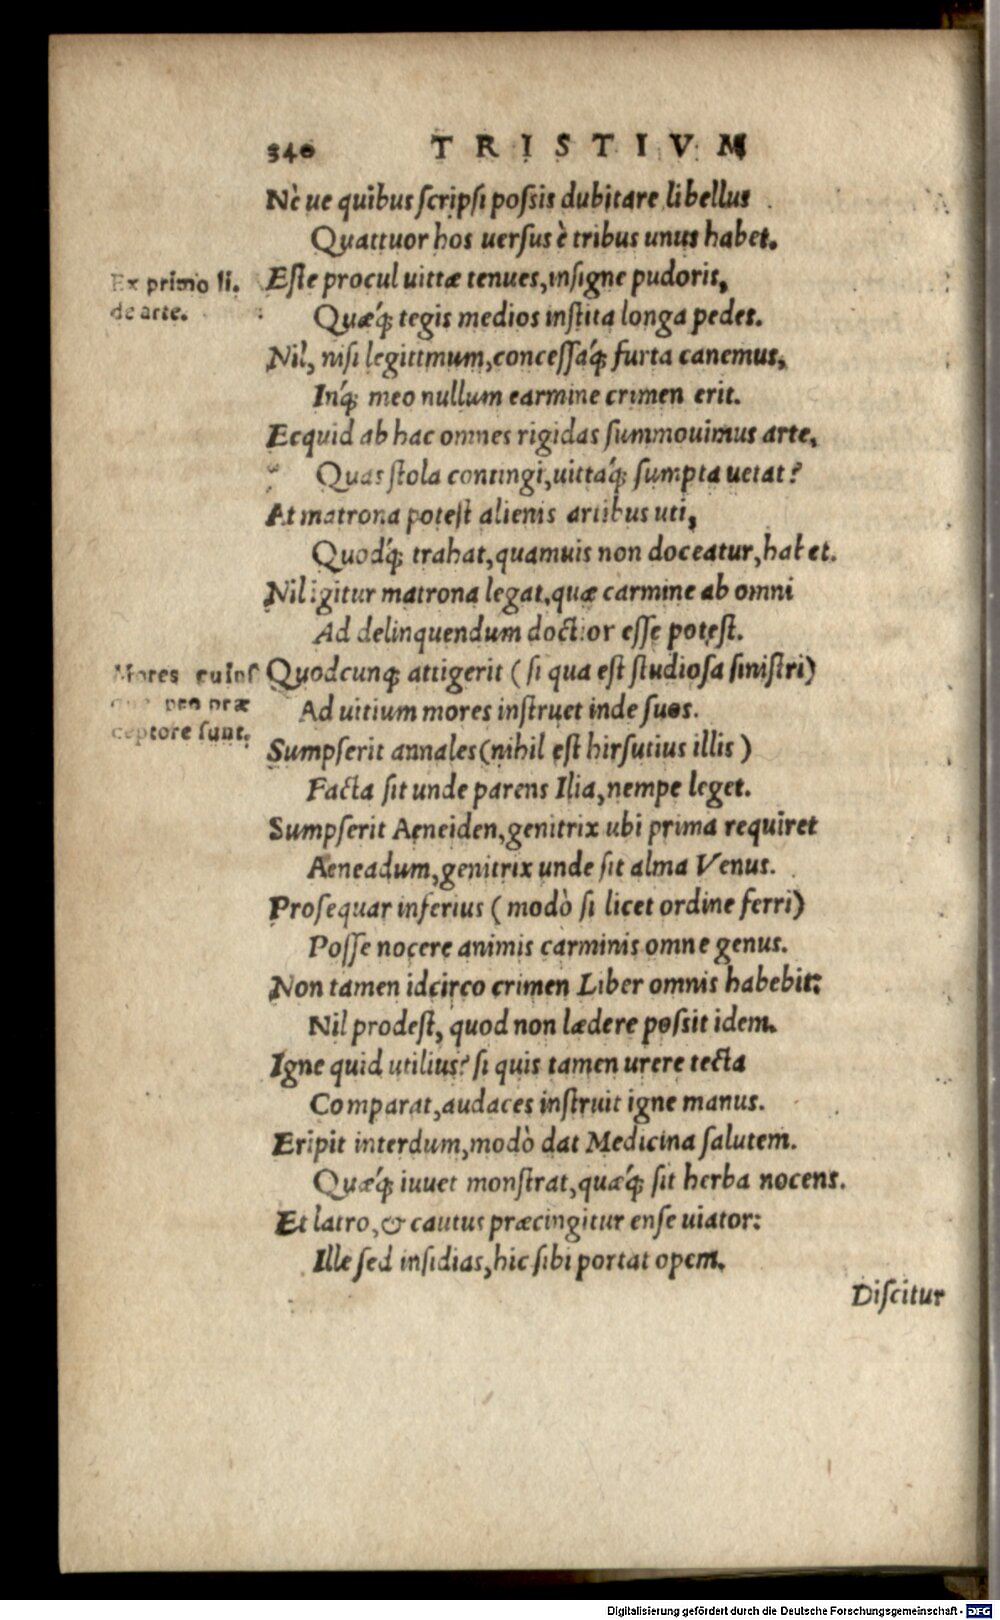 340 TRISTIVM
Nè ue quibus scripsi poſsis dubitare libellus
Quattuor hos uerſus è tribus unus habet.
Ex primo li. Eſte procul uittæ tenues, inſigne pudoris,
de arte. Quæq́; tegis medios inſtita longa pedes.
Nil, niſi legittmum, conceſſaq́; furta canemus,
Inq́; meo nullum earmine crimen erit.
Ecquid ab hac omnes rigidas ſummouimus arte,
Quas ſtola contingi, uittaq́; ſumpta uetat?
At matrona poteſt alienis artibus uti,
Quodq́; trahat, quamuis non doceatur, habet.
Nil igitur matrona legat, quæ carmine ab omni
Ad delinquendum doctior eſſe poteſt.
Mores cuiuſ Quodcunq; attigerit (ſi qua eſt ſtudioſa ſiniſtri)
que pro præ Ad uitium mores inſtruet inde ſuos.
ceptore ſunt. Sumpſerit annales (nihil eſt hirſutius illis)
Facta ſit unde parens Ilia, nempe leget.
Sumpſerit Aeneiden, genitrix ubi prima requiret
Aeneadum, genitrix unde ſit alma Venus.
Proſequar inferius (modò ſi licet ordine ferri)
Poſſe nocere animis carminis omne genus.
Non tamen idcirco crimen Liber omnis habebit:
Nil prodeſt, quod non lædere poſsit idem.
Igne quid utilius? ſi quis tamen urere tecta
Comparat, audaces inſtruit igne manus.
Eripit interdum, modò dat Medicina ſalutem.
Quæq́; iuuet monſtrat, quæq́; ſit herba nocens.
Et latro, & cautus præcingitur enſe uiator:
Ille ſed inſidias, hic ſibi portat opem.
Diſcitur
Digitalisierung gefördert durch die Deutsche Forschungsgemeinschaft - DFG